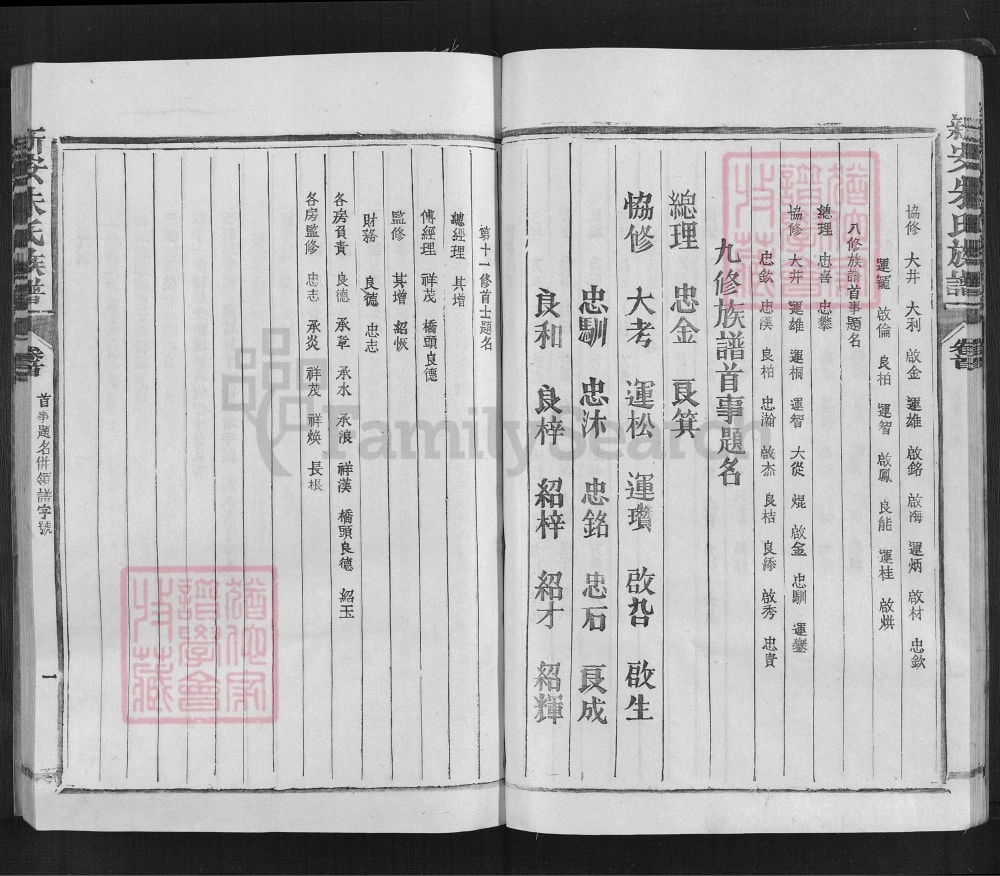 新安朱氏族譜
卷首
協修 大井 大利 啟金 運雄 啟銘 啟海 運炳 啟材 忠欽
運寵 啟倫 良柏 運智 啟鳳 良能 運桂 啟烘
八修族譜首事題名
總理 忠喜 忠攀
協修 大井 運雄 運桐 運智 大從 焜 啟金 忠馴 運鑾
忠欽 忠漢 良柏 忠瀚 啟杰 良桔 良添 啟秀 忠貴
九修族譜首事題名
總理 忠金 良箕
協修 大考 運松 運瓚 啟 啟生
忠馴 忠沐 忠銘 忠石 良成
良和 良梓 紹梓 紹才 紹輝
第十一修首士題名
總經理 其增
傅經理 祥茂 橋頭良德
監修 其增 紹恢
財務 良德 忠志
各房負責 良德 承章 承水 承浪 祥漢 橋頭良德 紹玉
各房監修 忠志 承炎 祥茂 祥煥 長根
新安朱氏族譜
卷首
首事題名併領譜字號
一
猶他家譜學會收藏
猶他家譜學會收藏
FamilySearch